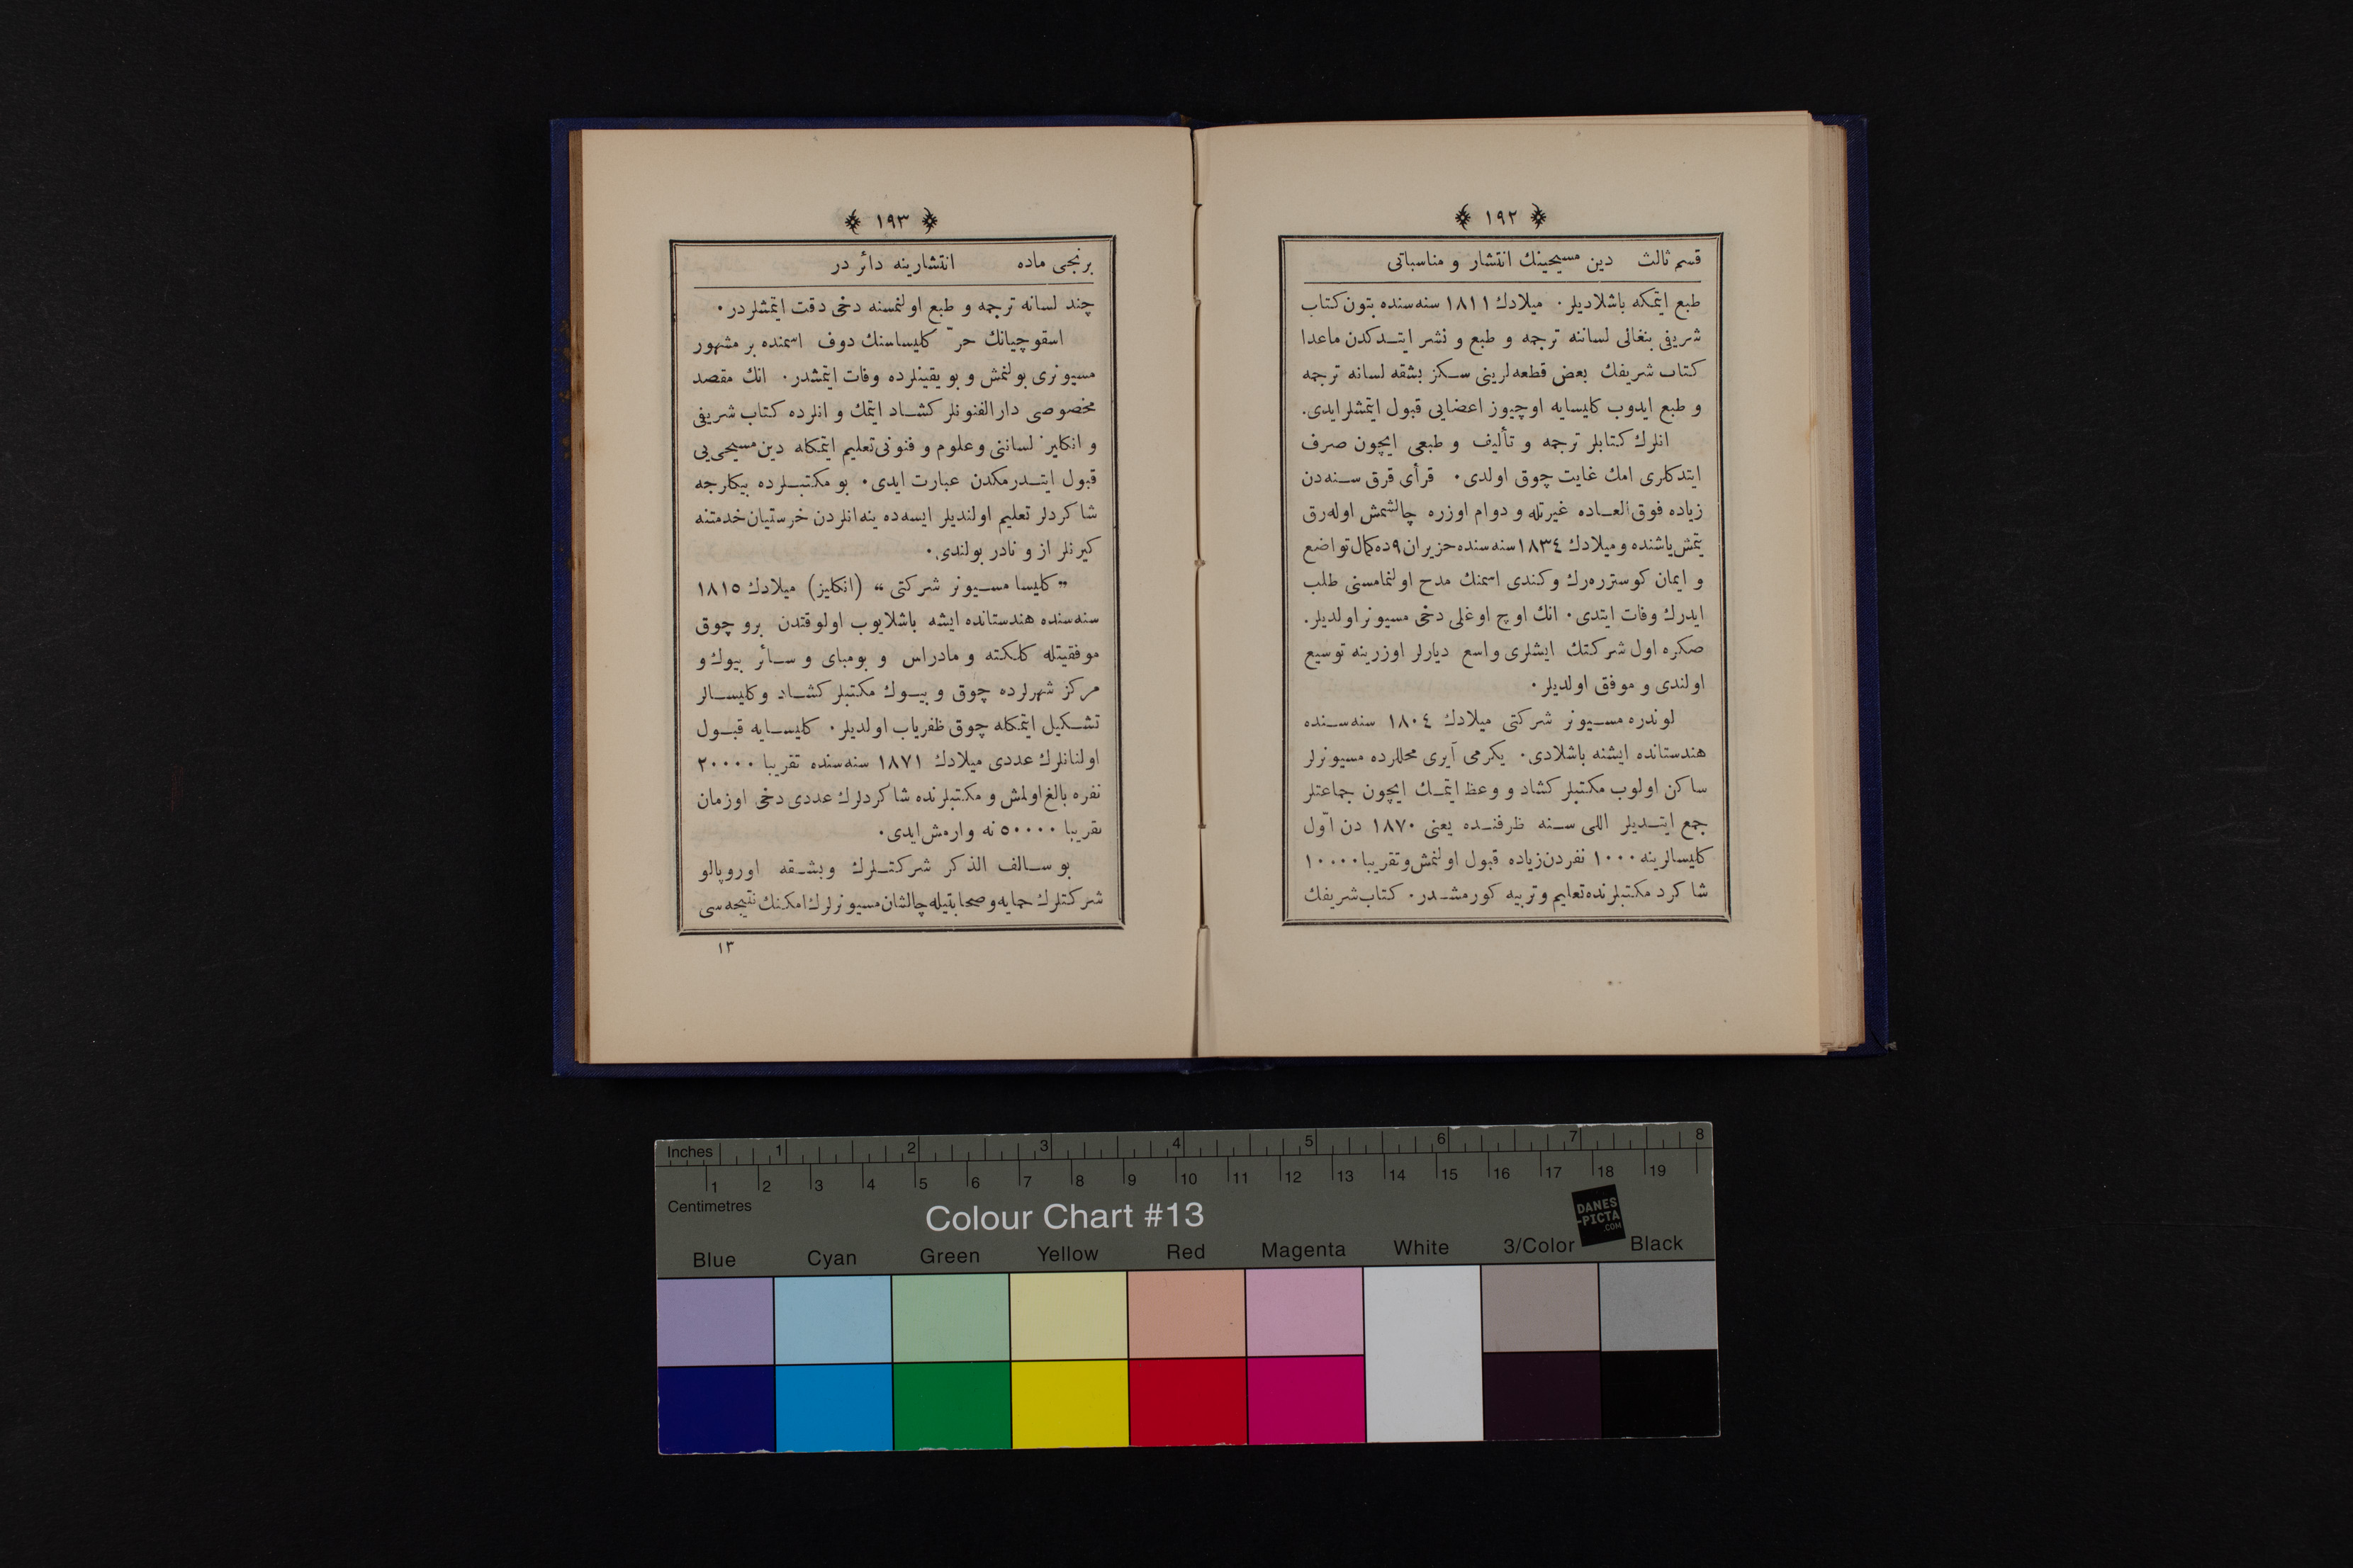 ﴿ ١٩٢ ﴾
قسم ثالث دین مسیحینك انتشار و مناسباتی
طبع ایتمكه باشلادیلر · میلادك ١٨١١ سنه‌سنده بتون كتاب
شریفی بنغالی لساننه ترجمه و طبع و نشر ایتـدكدن ماعدا
كتاب شریفك بعض قطعه‌لرینی سـكز بشقه لسانه ترجمه
و طبع ایدوب كلیسایه اوچیوز اعضایی قبول ایتمشلر ایدی.
انلرك كتابلر ترجمه و تألیف و طبعی ایچون صرف
ایتدكلری امك غایت چوق اولدی · قرأی قرق سـنه‌دن
زیاده فوق العـاده غیرتله و دوام اوزره چالشمش اوله‌رق
یتمش یاشنده و میلادك ١٨٣٤ سنه سنده حزیران ٩ ده كمال تواضع
و ایمان كوستره‌رك و كندی اسمنك مدح اولنمامسنی طلب
ایدرك وفات ایتدی · انك اوچ اوغلی دخی مسیونر اولدیلر.
صكره اول شركتك ایشلری واسع دیارلر اوزرینه توسیع
اولندی و موفق اولدیلر ·
لوندره مسـیونر شركتی میلادك ١٨٠٤ سنه سـنده
هندستانده ایشنه باشلادی · یكرمی آیری محللرده مسیونرلر
ساكن اولوب مكتبلر كشاد و وعظ ایتمـك ایچون جماعتلر
جمع ایتـدیلر اللی سـنه ظرفنـده یعنی ١٨٧٠ دن اوّل
كلیسالرینه ١٠٠٠ نفردن زیاده قبول اولنمش و تقریبا ١٠٠٠٠
شاكرد مكتبلرنده تعلیم و تربیه كورمشـدر · كتاب شریفك
﴿ ١٩٣ ﴾
برنجی ماده انتشارینه دائر در
چند لسانه ترجمه و طبع اولنمسنه دخی دقت ایتمشلردر ·
اسقوچیانك حرّ كلیساسنك دوف اسمنده بر مشهور
مسیونری بولنمش و بو یقینلرده وفات ایتمشدر · انك مقصد
مخصوصی دار الفنونلر كشـاد ایتمك و انلرده كتاب شریفی
و انكلیز لساننی و علوم و فنونی تعلیم ایتمكله دین مسیحی یی
قبول ایتـدرمكدن عبارت ایدی · بو مكتبـلرده بیكلرجه
شاكردلر تعلیم اولندیلر ایسه‌ده ینه انلردن خرستیان خدمتنه
كیرنلر از و نادر بولندی ·
„كلیسا مسـیونر شركتی“ (انكلیز) میلادك ١٨١٥
سنه سنده هندستانده ایشه باشلایوب اولوقتدن برو چوق
موفقیتله كلكته و مادراس و بومبای و سـائر بیوك و
مركز شهرلرده چوق و بیـوك مكتبلر كشـاد و كلیسـالر
تشـكیل ایتمكله چوق ظفریاب اولدیلر · كلیسـایه قبـول
اولنانلرك عددی میلادك ١٨٧١ سنه سنده تقریبا ٢٠٠٠٠
نفره بالغ اولمش و مكتبلرنده شاكردلرك عددی دخی اوزمان
تقریبا ٥٠٠٠٠ نه وارمش ایدی ·
بو سـالف الذكر شركتـلرك وبشـقه اوروپالو
شركتلرك حمایه و صحابتیله چالشان مسیونرلرك امكنك نتیجه سی
١٣
Inches 1 2 3 4 5 6 7 8
1 2 3 4 5 6 7 8 9 10 11 12 13 14 15 16 17 18 19
Centimetres
Colour Chart #13
DANES
-PICTA
.COM
Blue Cyan Green Yellow Red Magenta White 3/Color Black